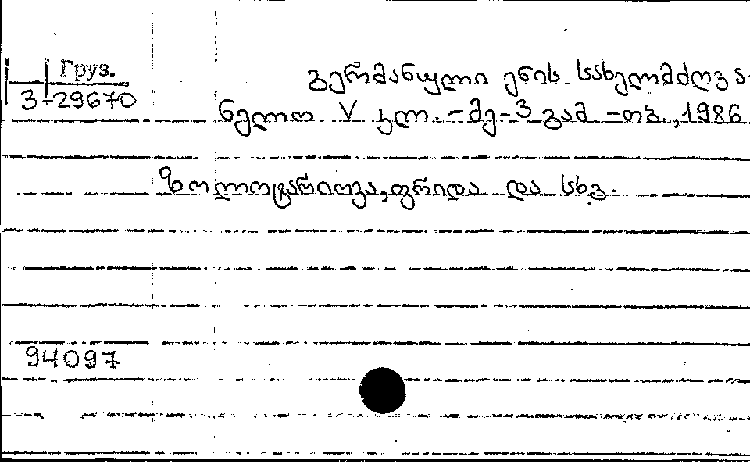 Груз.
3-29670
გერმანული ენის სახელმძღვა-
ნელო V კლ. - მე-3 გამ - თბ., 1986
ზოლოტარიოვა, ფრიდა და სხვ.
94097